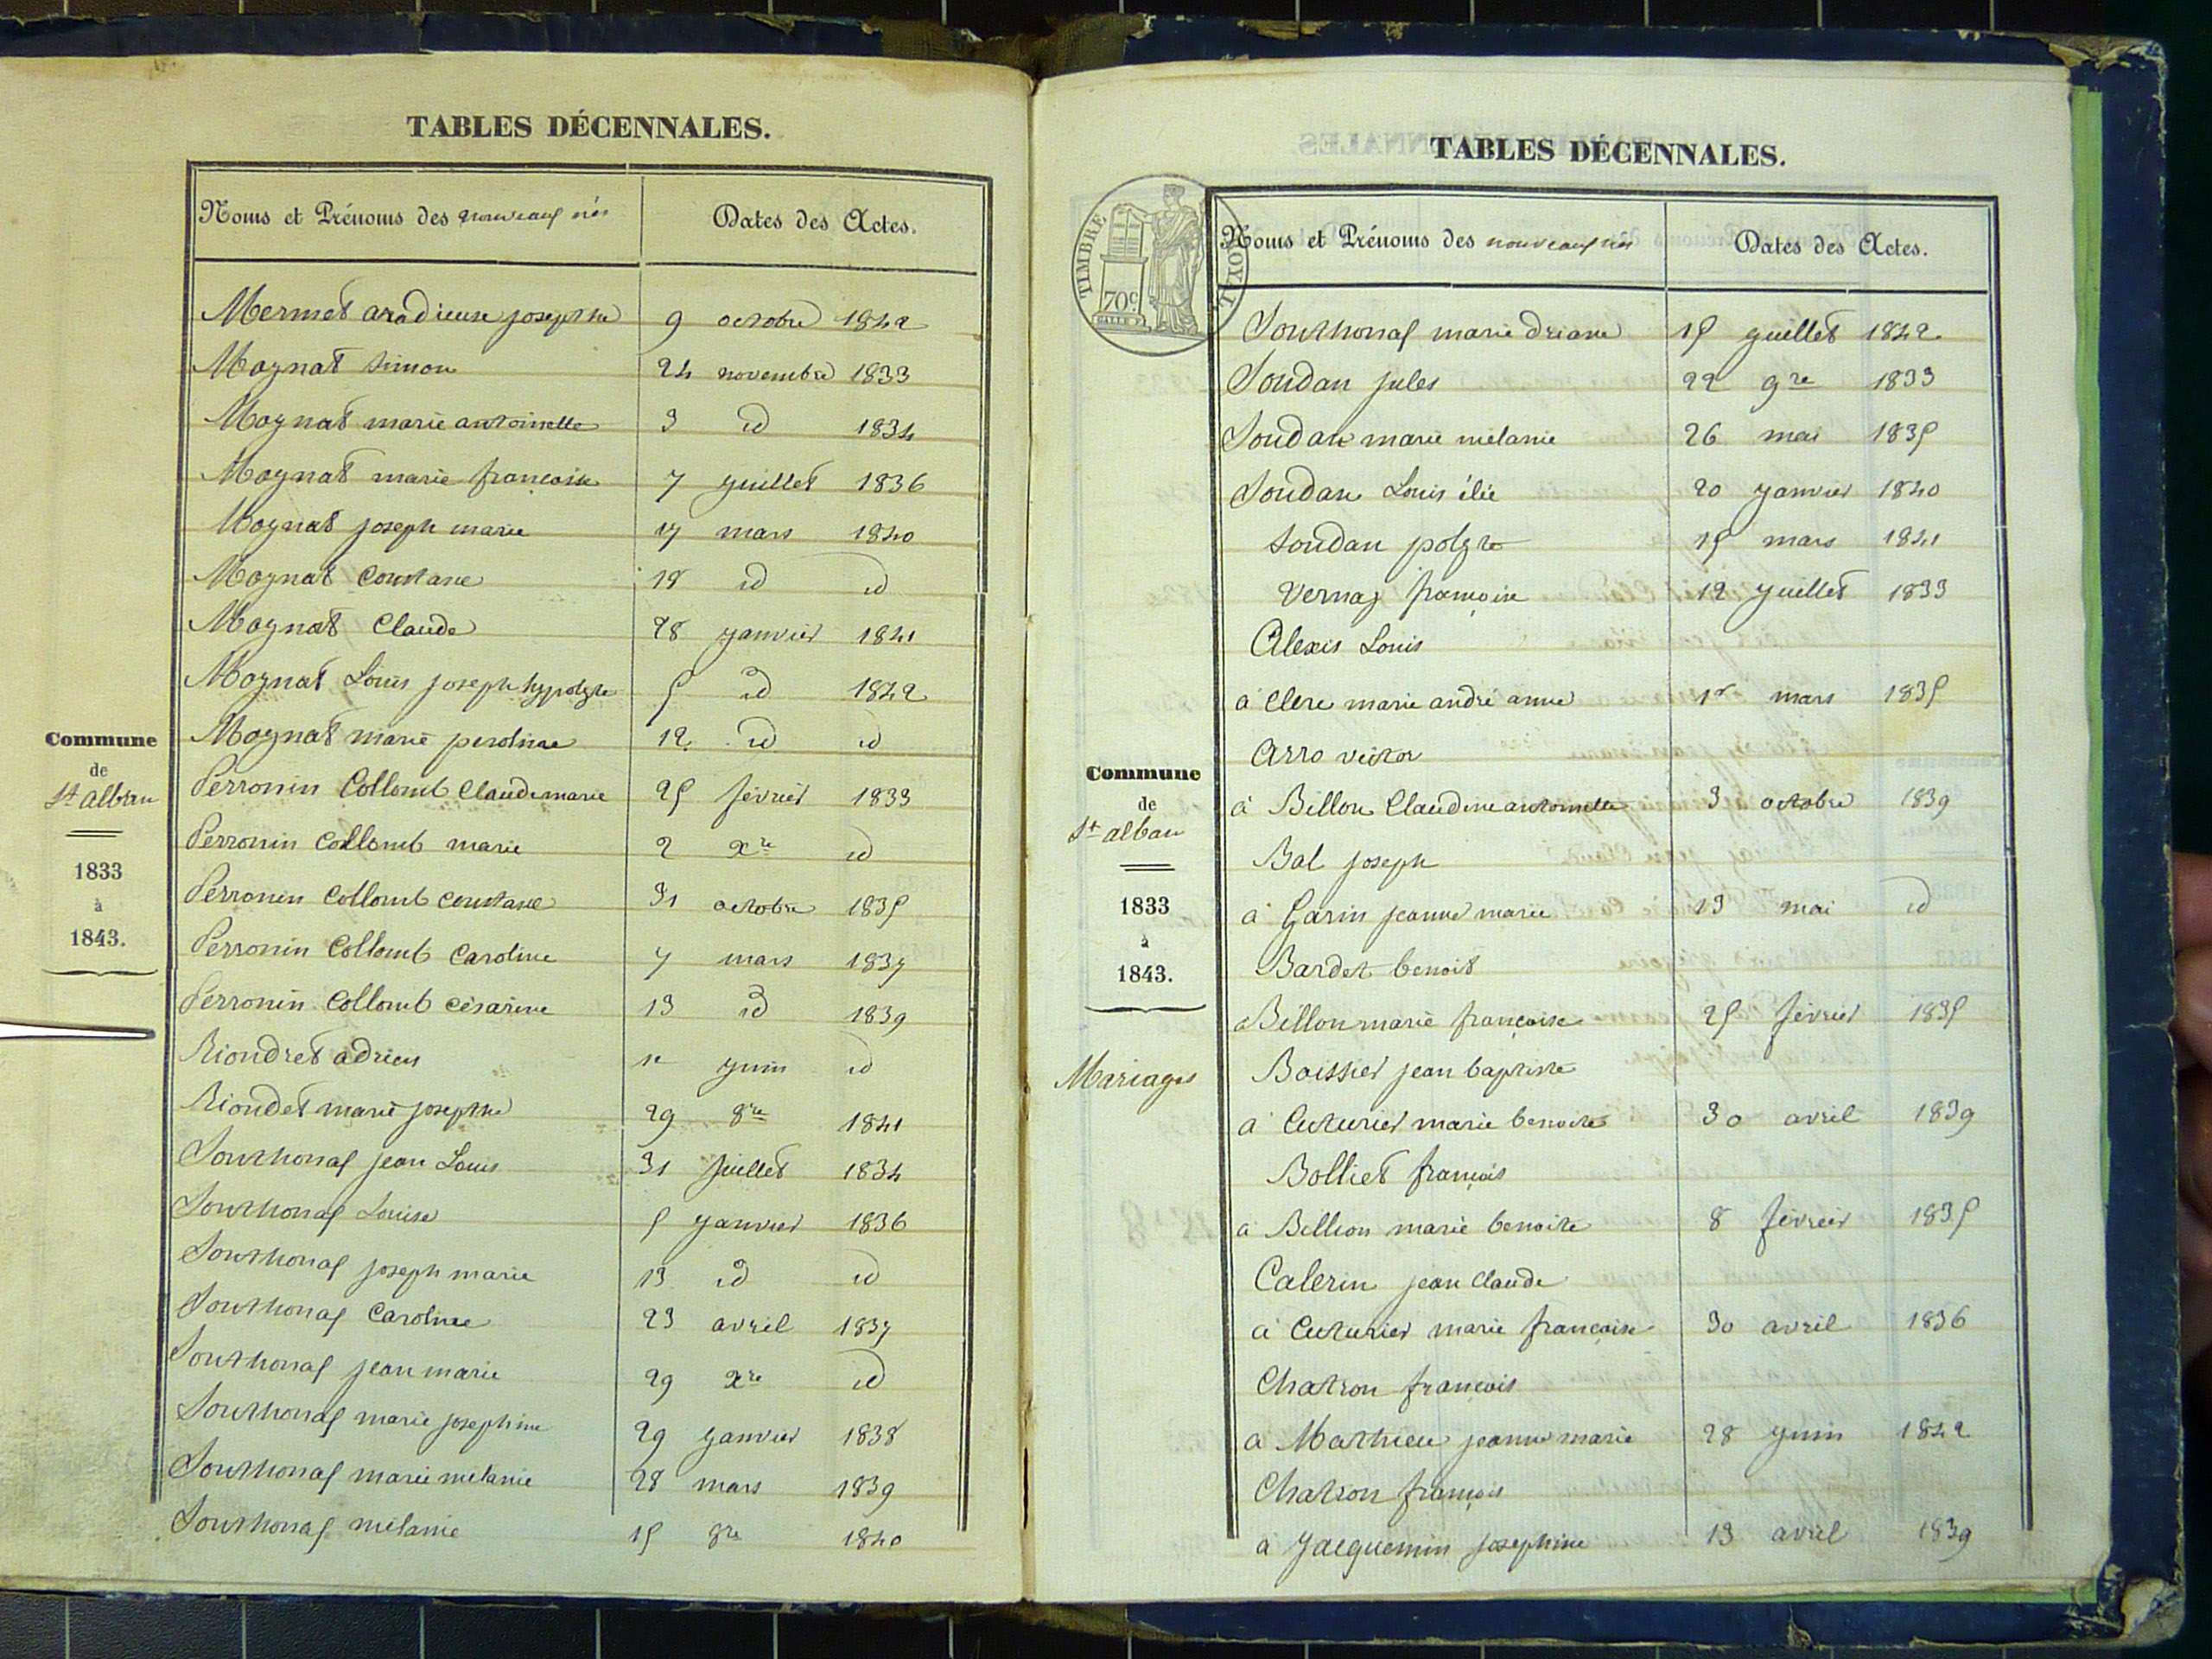 TABLES DÉCENNALES.
Noms et Prénoms des nouveaux nés Dates des Actes.
Mermet aradieuse josephte 9 octobre 1842
Mognat simon 24 novembre 1833
Mognat marie antoinette 3 id 1834
Mognat marie françoise 7 juillet 1836
Mognat joseph marie 17 mars 1840
Mognat Constance 18 id id
Mognat Claude 28 janvier 1841
Mognat Louis joseph hypolyte 5 id 1842
Mognat marie perolinae 12 id id
Perronin Collomb Claudemarie 25 février 1833
Perronin Collomb marie 2 xre id
Perronin Collomb Constance 31 octobre 1835
Perronin Collomb Caroline 7 mars 1837
Perronin Collomb césarine 13 id 1839
Riondret adrien 1er juin id
Riondet marie josephte 29 8re 1841
Southonax jean Louis 31 juillet 1834
Southonax Louise 5 janvier 1836
Southonax joseph marie 13 id id
Southonax Caroline 23 avril 1837
Southonax jean marie 29 xre id
Southonax marie josephine 29 janvier 1838
Southonax marie mélanie 28 mars 1839
Southonax mélanie 15 8re 1840
Commune
de
St alban
1833
à
1843.
TABLES DÉCENNALES.
TIMBRE ROYAL
70c
Noms et Prénoms des nouveaux nés Dates des Actes.
Southonax marie driane 15 juillet 1842
Soudan jules 22 9re 1833
Soudan marie mélanie 26 mai 1835
Soudan Louis élie 20 janvier 1840
Soudan polyte 15 mars 1841
Vernaz françoise 12 juillet 1833
Alexis Louis
à Clerc marie andré anne 1er mars 1835
Arro victor
à Billon Claudine antoinette 3 octobre 1839
Bal joseph
à Garin jeanne marie 13 mai id
Bardet benoit
a Billon marie françoise 25 février 1835
Boissier jean baptiste
à Cuturier marie benoite 30 avril 1839
Bolliet françois
à Billion marie benoite 8 février 1835
Calerin jean Claude
à Cuturier marie françoise 30 avril 1836
Chatron françois
a Mathieu jeanne marie 28 juin 1842
Chatron françois
a Jacquemin josephine 13 avril 1839
Commune
de
St alban
1833
à
1843.
Mariages